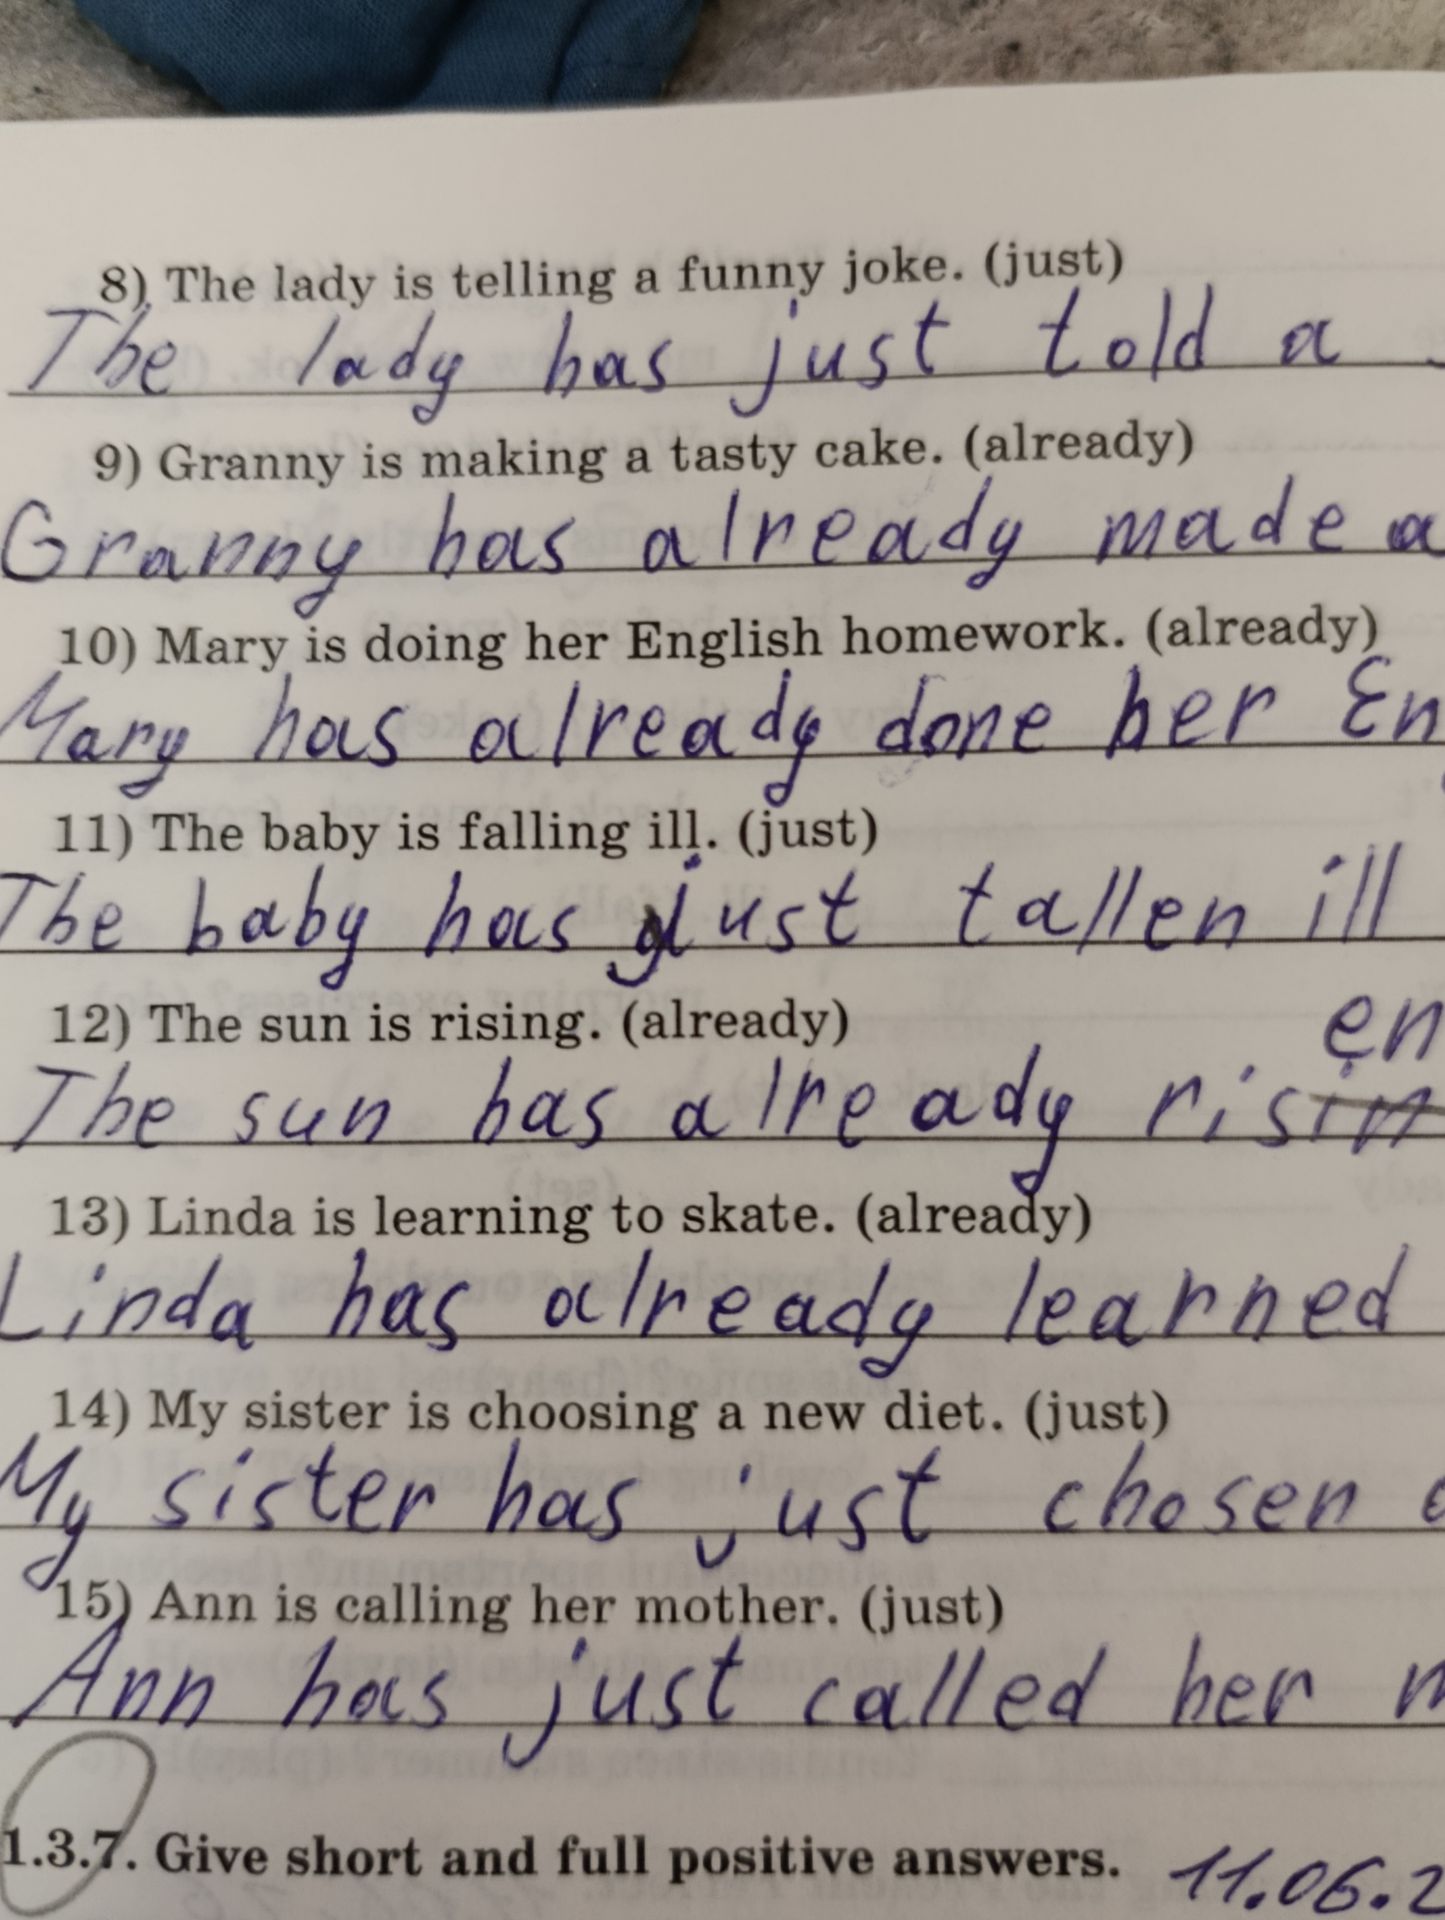 8) The lady is telling a funny joke. (just)
The lady has just told a
9) Granny is making a tasty cake. (already)
Granny has already made a
10) Mary is doing her English homework. (already)
Mary has already done her En
11) The baby is falling ill. (just)
The baby has just tallen ill
12) The sun is rising. (already)
en
The sun has already risin
13) Linda is learning to skate. (already)
Linda has already learned
14) My sister is choosing a new diet. (just)
My sister has just chosen
15) Ann is calling her mother. (just)
Ann has just called her m
1.3.7. Give short and full positive answers. 11.06.2